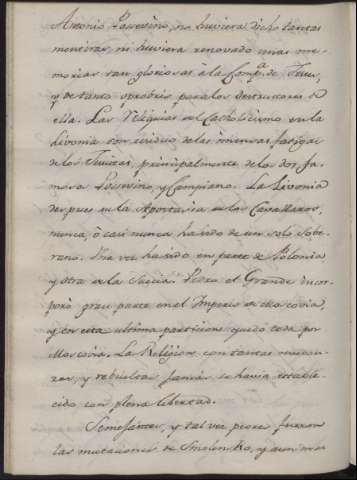 Antonio Possevino, no huviera dicho tantas
mentiras, ni huviera renovado unas me-
morias tan gloriosas à la Comp.ª de Jesus,
y de tanto oprobrio para los destructores de
ella. Las Reliquias del Catholicismo en la
Livonia son residuo de las inmensas fatigas
de los Jesuitas, principalmente de los dos fa-
mosos Possevino, y Campiano. La Livonia
despues de la Apostasia de los Cavalleros,
nunca, ò casi nunca ha sido de un solo Sobe-
rano. Una vez ha sido en parte de Polonia
y otra de la Suecia. Pedro el Grande incor-
porò gran parte en el Imperio de Moscovia,
y en esta ultima particion quedò toda por
Moscovia. La Religion con tantas mudan-
zas, y rebueltas jamás se havia estable-
cido con plena libertad.
Semejantes, y tal vez peores fueron
las mutaciones de Smolensko, y aun mas